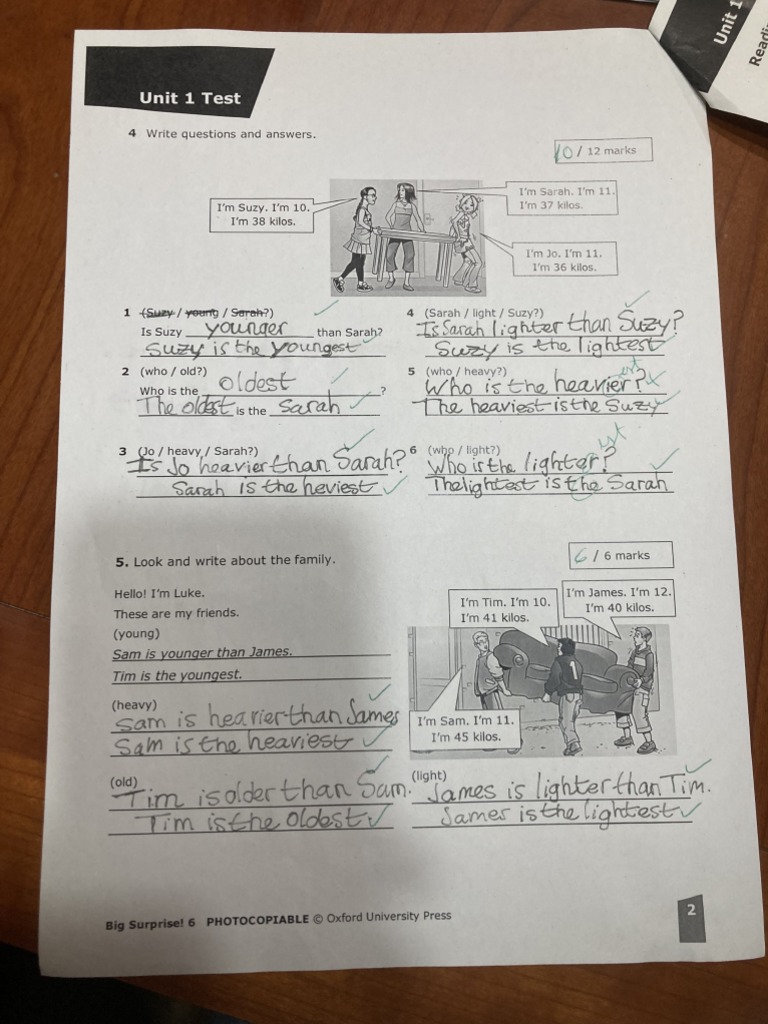 Unit 1
Unit 1 Test
4 Write questions and answers.
10 / 12 marks
I'm Suzy. I'm 10.
I'm 38 kilos.
I'm Sarah. I'm 11.
I'm 37 kilos.
I'm Jo. I'm 11.
I'm 36 kilos.
1 (Suzy / young / Sarah?)
Is Suzy younger than Sarah?
Suzy is the youngest
2 (who / old?)
Who is the oldest ?
The oldest is the Sarah
3 (Jo / heavy / Sarah?)
Is Jo heavier than Sarah?
Sarah is the heviest
4 (Sarah / light / Suzy?)
Is Sarah lighter than Suzy?
Suzy is the lightest
5 (who / heavy?)
est
Who is the heavier?
The heaviest is the Suzy
6 (who / light?)
est
Who is the lighter?
The lightest is the Sarah
5. Look and write about the family.
6 / 6 marks
Hello! I'm Luke.
These are my friends.
(young)
Sam is younger than James.
Tim is the youngest.
I'm Tim. I'm 10.
I'm 41 kilos.
I'm James. I'm 12.
I'm 40 kilos.
1
I'm Sam. I'm 11.
I'm 45 kilos.
(heavy)
Sam is heavier than James
Sam is the heaviest
(old)
Tim is older than Sam.
Tim is the oldest
(light)
James is lighter than Tim.
James is the lightest
Big Surprise! 6 PHOTOCOPIABLE © Oxford University Press
2